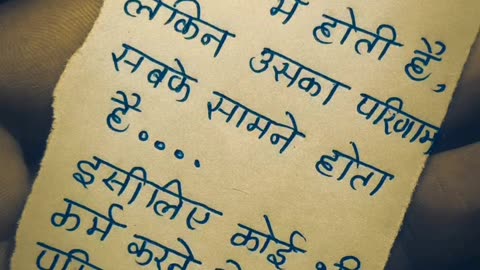 में होती है,
लेकिन उसका परिणाम
सबके सामने होता
है....
इसीलिए कोई भी
कर्म करने से